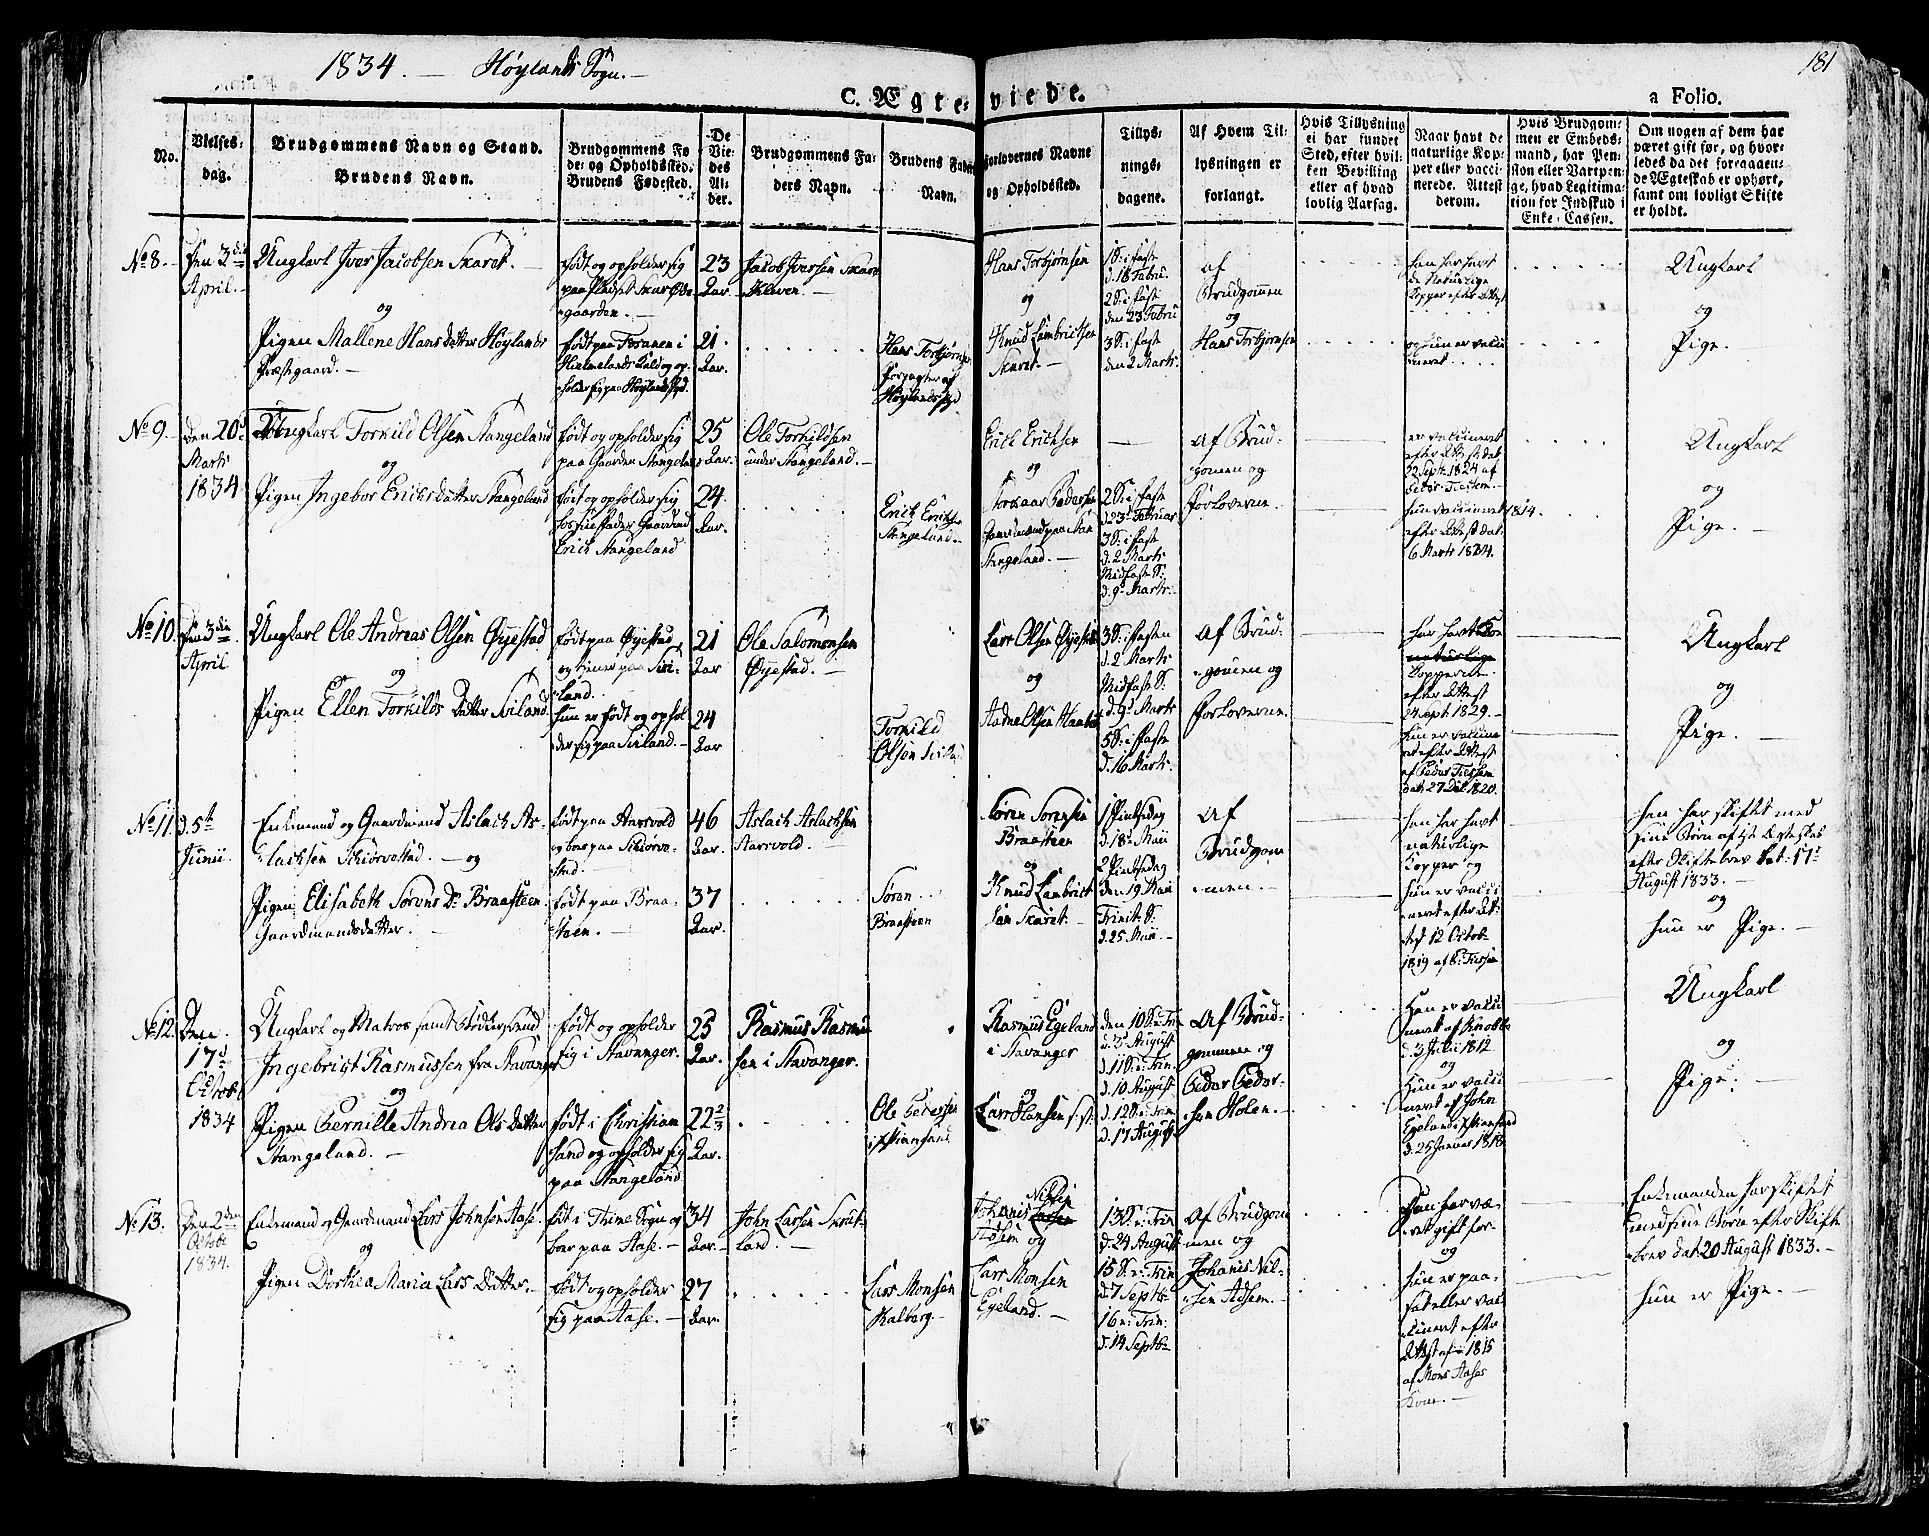 1834. — Høylands Sogn. —
181
C. Ægte-viede.
a Folio.
No.
Vielses-
dag.
Brudgommens Navn og Stand.
Brudens Navn.
Brudgommens Fø-
de- og Opholdssted.
Brudens Fødested.
De
Vie-
des
Al-
der.
Brudgommens Fa-
ders Navn.
Brudens Faders
Navn.
Forlovernes Navne
og Opholdssted.
Tillys-
nings-
dagene.
Af Hvem Til-
lysningen er
forlangt.
Hvis Tillysning
ei har fundet
Sted, efter hvil-
ken Bevilling
eller af hvad
lovlig Aarsag.
Naar havt de
naturlige Kop-
per eller vacci-
nerede. Attest
derom.
Hvis Brudgom-
men er Embeds-
mand, har Pen-
sion eller Vartpen-
ge, hvad Legitima-
tion for Indskud i
Enke-Cassen.
Om nogen af dem har
været gift før, og hvor-
ledes da det foregaaen-
de Ægteskab er ophørt,
samt om lovligt Skifte
er holdt.
No 8.
Den 3die
April. —
Ungkarl Iver Jacobsen Skaret. —
og
Pigen Mallene Hans Datter Høylands
Præstgaard. —
født og opholder sig
paa Pladset Skar
gaarden. —
født paa Foranen i
Hielmelands Kald og op-
holder sig paa Høylands
23
Aar.
21
Aar.
Jacob Iversen Skare
Kleven. —
Hans Torbjørns.
Forpagter af
Høylands
Hans Torbjørnsen
og
Knud Lambrictsen
Skaret. —
1 S: i faste
d. 16 Febru:
2 S: i faste
den 23 Febru
3 S: i faste
den 2 Marts
af
Brudgommen
og
Hans Torbjørnsen
han har havt
de Naturlige
Kopper efter Attest
og hun er vacci
neret
Ungkarl
og
Pige. —
No 9.
den 20d
Marts
1834
Ungkarl Torkild Olsen Stangeland
og
Pigen Ingebor Erichs Datter Stangeland
født og opholder sig
paa Gaarden Stangeland
født og opholder sig
hos sin fader Gaardmd
Erich Stangeland
25
Aar.
24
Aar.
Ole Torkildsen
under Stangeland. —
Erich Erichsen
Stangeland. —
Erich Erichsen
og
Pedersen
Gaardmænd paa
Stangeland. —
2 S: i faste
d. 23d Februar
3 S: i faste
d. 2 Marts
Midfaste S:
d. 9d Marts.
af Brud-
gommen og
forloveren.
er vaccineret
efter Attest dat
Septr 1824 af
Peder Tiessem. —
hun vaccineret 1814.
efter Attest dat:
6 Marts 1824.
Ungkarl
og
Pige. —
No 10.
Den 3die
April
Ungkarl Ole Andreas Olsen Øyestad
og
Pigen Ellen Torkilds Datter Sviland
født paa Øyestad
og tiener paa Svi-
land.
hun er født og ophol
der sig paa Sviland. —
21
Aar
24
Aar
Ole Salomonsen
Øyestad. —
Torkild
Olsen Sviland
Lars Olsen Øyestad
og
Aadne Olsen
3 S: i fasten
d. 2 Marts
Midfaste S:
d. 9d Marts
5 S: i faste
d. 16 Marts.
af Brud-
gommen og
forloveren.
har havt
naturlige
Kopperne
efter Attest
24 Sept. 1829. —
hun er vaccine
ret efter Attest
af Peder Tiessem
dat: 27 Dec 1820.
Ungkarl
og
Pige. —
No 11.
d. 5te
Junii.
Enkemand og Gaardmand Aslach As-
lachsen Schiørvestad. — og
Pigen Elisabeth Sørens Dr Braasteen
Gaardmandsdatter. —
født paa Aarsvold
og boer paa Schiørve-
stad. —
født paa Braa-
steen. —
46
Aar.
37
Aar.
Aslach Aslachsen
Aarsvold. —
Søren
Braasteen
Søren Sørensen
Braasteen
og
Knud Lambrict
sen Skaret. —
1 Pintsedag
d. 18d Maii
2 Pintsedag
den 19 Maii
Trinit. S:
d. 25 Maii. —
af
Brudgom
men. —
han har havt
naturlige
Kopper og
hun er vacci
neret efter At-
test 12 Octobr
1819 af P. Tiessem
han har skiftet med
sine Børn af 1st Ægteskab
efter Skiftebrev dat: 17d
August 1833. —
og
hun er Pige. —
No 12.
Den
17d
Octobr
1834
Ungkarl og Matros samt
Ingebrigt Rasmussen fra Stavanger
og
Pigen Pernille Andrea Ols Datter
Stangeland. —
født og opholder
sig i Stavanger.
født i Christian
sand og opholder sig
paa Stangeland
25
Aar.
22 2/3
Aar.
Rasmus Rasmus
sen i Stavanger.
Ole Pedersen
i Xtiansand
Rasmus Egeland
i Stavanger
og
Lars Hansen s. st:
den 10 S: e: Trin
d. 3d August
d. 11 S: e: Trin.
d. 10 August
d. 12 S: e: Trin
d. 17 August
af Brud-
gommen og
Peder Peder-
sen Holen.
Han er vacci
neret af Knobbe
d. 3 Julii 1812
og
Hun er vacci
neret af John
Egeland i Xtiansand
d. 25 Januar 1818.
Ungkarl
og
Pige. —
No 13.
Den 2den
Octobr
1834.
Enkemand og Gaardmand Lars Johnsen Aase.
og
Pigen Dorthea Maria Lars Datter. —
født i Thime Sogn og
boer paa Aase. —
født og opholder
sig paa Aase. —
34
Aar.
27
Aar.
John Larsen
land. —
Lars Monsen
Kalberg. —
Johanis
Adsem og
Lars Monsen
Egeland. —
13 S: e: Trin
d. 24 August
15 S: e: Trin
d. 7 Septbr
16 e: Trin:
d. 14 Septbr
af Brudgom
men og
Johanis Nil-
sen Adsem. —
han har væ-
ret gift før
og
hun er paa-
sat eller vac-
cineret efter
Attest af 1815
af Mons Aases
Kone. —
Enkemanden har skiftet
med sine Børn efter Skifte
brev dat: 20 August 1833. —
hun er Pige. —